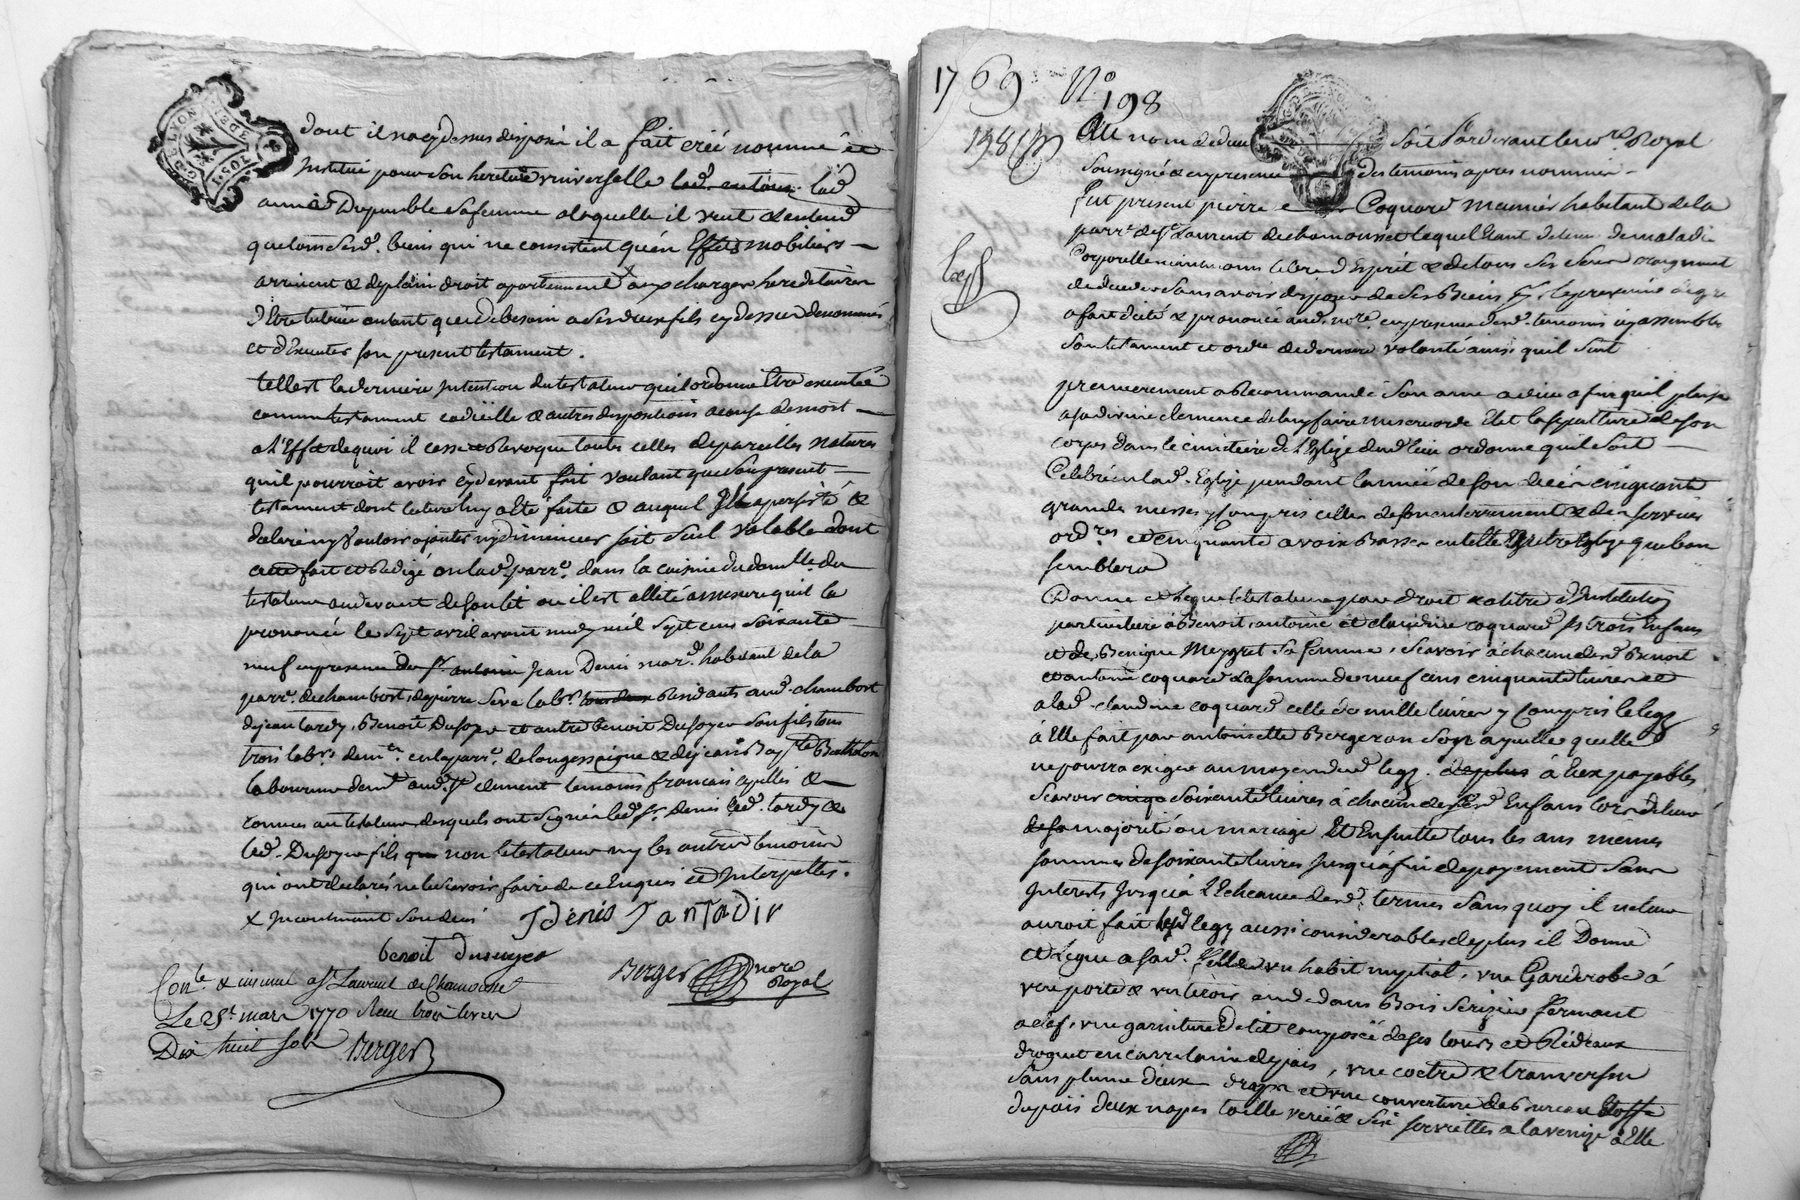 G. DE LYON
2 SOLS
dont il n'a cydessus disposé il a fait créé nommé et
institué pour son heretière universelle lad.
sa femme a laquelle il veut et entend
que tous sesd. biens qui ne consistent qu'en Effets mobiliers
arrivent et de plain droit apartiennent x aux charges hereditaires
d'Etre tutrice autant que de besoin a ses deux fils cy dessus denommés
et d'Executer son present testament.
tell est la derniere intention du testateur qu'il ordonne Etre executée
comme testament codicille et autres dispositions a cause de mort
a l'Effet de quoi il casse et Revoque toutes celles de pareilles natures
qu'il pourroit avoir cydevant fait voulant que son present
testament dont lecture luy a été faite et auquel Il a persisté et
declaré n'y vouloir ajouter ny diminuer soit seul valable dont
acte fait et Redigé en lad. parr.e dans la cuisine du domicille du
testateur au devant de son lit ou il est allité a mesure qu'il l'a
prononcé le sept avril avant midy mil sept cens soixante
neuf en presence de s.r antoine jean Denis mar.d habitant de la
parr.e de chambost, de pierre Seve lab.r Residants aud. chambost
de jean tardy, Benoit Dusoyer et autre benoit Dusoyer son fils tous
trois lab.rs dem.ts en la parr.e de longessaigne et de jean Bap.te Bertholon
laboureur dem.t aud. S.t clement temoins francais apellés et
connus au testateur desquels ont signé led. s.r denis led. tardy et
led. Dusoyer fils non le testateur ny les autres temoins
qui ont declarés ne le scavoir faire de ce Enquis et Interpellés.
x incontinant son deces
J denis J a n T a di r
benoit dusoyer
Berger nore Royal
Con.lé et insinué a S.t Laurent de Chamousset
Le 28.e mars 1770 Reçu trois livres
Dix huit sols Berger
1769 N.o 198
198
Au nom de dieu soit Pardevant le no.re Royal
soussigné et en presence des temoins apres nommés
fut present pierre Coquard meunier habitant de la
parr.e de S.t Laurent de chamousset lequel Etant detenu de maladie
Corporelle neanmoins libre d'Esprit et de tous ses sens craignant
de deceder sans avoir disposé de ses Biens
a fait dicté et prononcé aud. no.re en presence desd. temoins icy assemblés
son testament et ord.ce de derniere volonté ainsi qu'il suit
premierement a Recommandé son ame a dieu afin qu'il plaise
a sa divine clemence de luy faire misericorde Elit la sepulture de son
corps dans le cimetiere de l'Eglize dud. lieu ordonne qu'il soit
Celebré en lad. Eglize pendant l'année de son decés cinquante
grandes messes y compris celles de son enterrement et des services
ord.res et cinquante a voix Basse en telle autre Eglize que bon
semblera
Donne et Legue le testateur par droit et a titre d'Institution
particuliere a Benoit, antoine et claudine coquard ses trois Enfans
et de Benigne Meygret sa femme, scavoir a chacun desd. Benoit
et antoine coquard la somme de neuf cens cinquante livres et
a lad. claudine coquard celle de mille livres y compris le legz
a Elle fait par antoinette Bergeron son ayeulle qu'elle
ne pourra exiger au moyen dud. legz. a Eux payables
scavoir soixante livres a chacun desd. Enfans lors de leur
de sa majorité ou mariage Et Ensuitte tous les ans memes
sommes de soixante livres jusqu'a fin de payement sans
interests jusqu'a l'Echeance desd. termes sans quoy il ne leur
auroit fait legz aussi considerables de plus il Donne
et Legue a sad. fille un habit nuptial, une Garderobe a
une porte et un tiroir au dedans Bois Serizier fermant
a clef, une garniture de lit composée de ses tours et Rideaux
droguet en carrelaine du pais, une coetre et traversin
sans plume deux draps et une couverture de bureau Etoffe
du pais deux napes toille verée et six serviettes a la venize a Elle